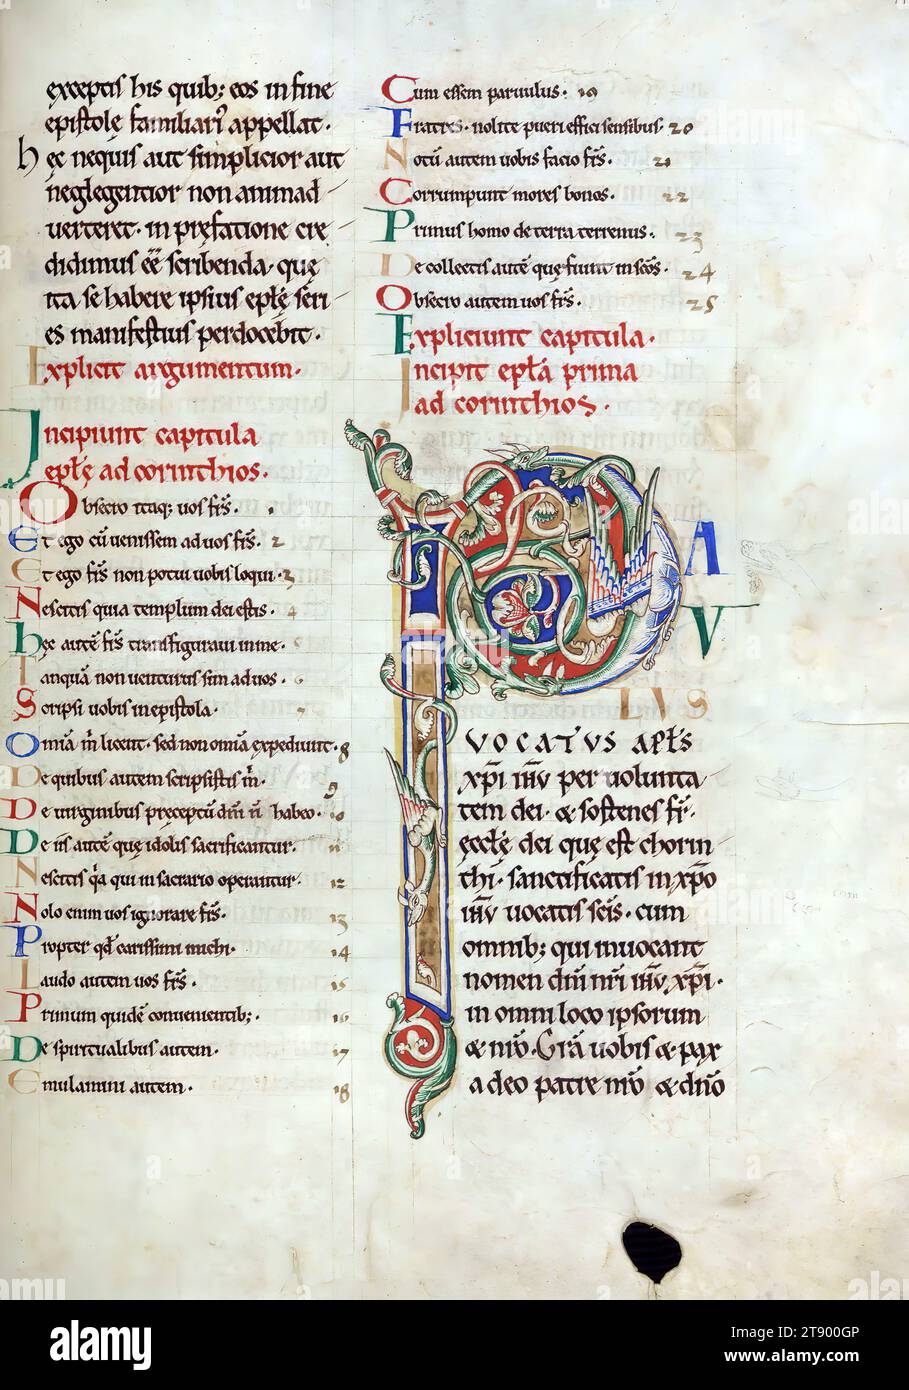 exceptis his quib; eos in fine
epistole familiari᷒ appellat·
hęc nequis aut simplicior aut
neglegentior non animad
verteret· in pręfatione cre
didimus ēē scribenda· quę
ita se habere ipsius eplę seri
es manifestius perdocebit·
Explicit argumentum·
Incipiunt capitula
eplę ad corinthios·
Obsecro itaq; vos frs̄· 1
Et ego cū venissem ad vos frs̄· 2
Et ego frs̄ non potui vobis loqui· 3
Nescitis quia templum dei estis· 4
hęc autē frs̄ transfiguravi in me· 5
Tanquā non venturus sim ad vos· 6
Scripsi vobis in epistola· 7
Omīa m̄ licent· sed non omīa expediunt· 8
De quibus autem scripsistis m̄· 9
De virginibus preceptū dn̄i n̄ habeo· 10
De iis autē quę idolis sacrificantur· 11
Nescitis qa qui in sacrario operantur· 12
Nolo enim vos ignorare frs̄· 13
Propter qd̄ carissimi michi· 14
Laudo autem vos frs̄· 15
Primum quidē convenientib; 16
De spiritualibus autem· 17
Emulamini autem· 18
Cum essem parvulus· 19
Fratres· nolite pueri effici sensibus· 20
Notū autem vobis facio frs̄· 21
Corrumpunt mores bonos· 22
Primus homo de terra terrenus· 23
De collectis autē quę fiunt in scōs· 24
Obsecro autem vos frs̄· 25
Expliciunt capitula·
Incipit epła prima
ad corinthios·
PAVLVS
VOCATVS APLS
xp̄i ih̄u per volunta
tem dei· & sostenes fr̄·
ęcclę dei quę est chorin
thi· sanctificatis in xp̄o
ih̄u vocatis sc̄is· cum
omnib; qui invocant
nomen dn̄i nr̄i ih̄u xp̄i·
in omni loco ipsorum
& nr̄o· Grā vobis & pax
a deo patre nr̄o & dn̄o
alamy
Image ID: 2T900GP
www.alamy.com